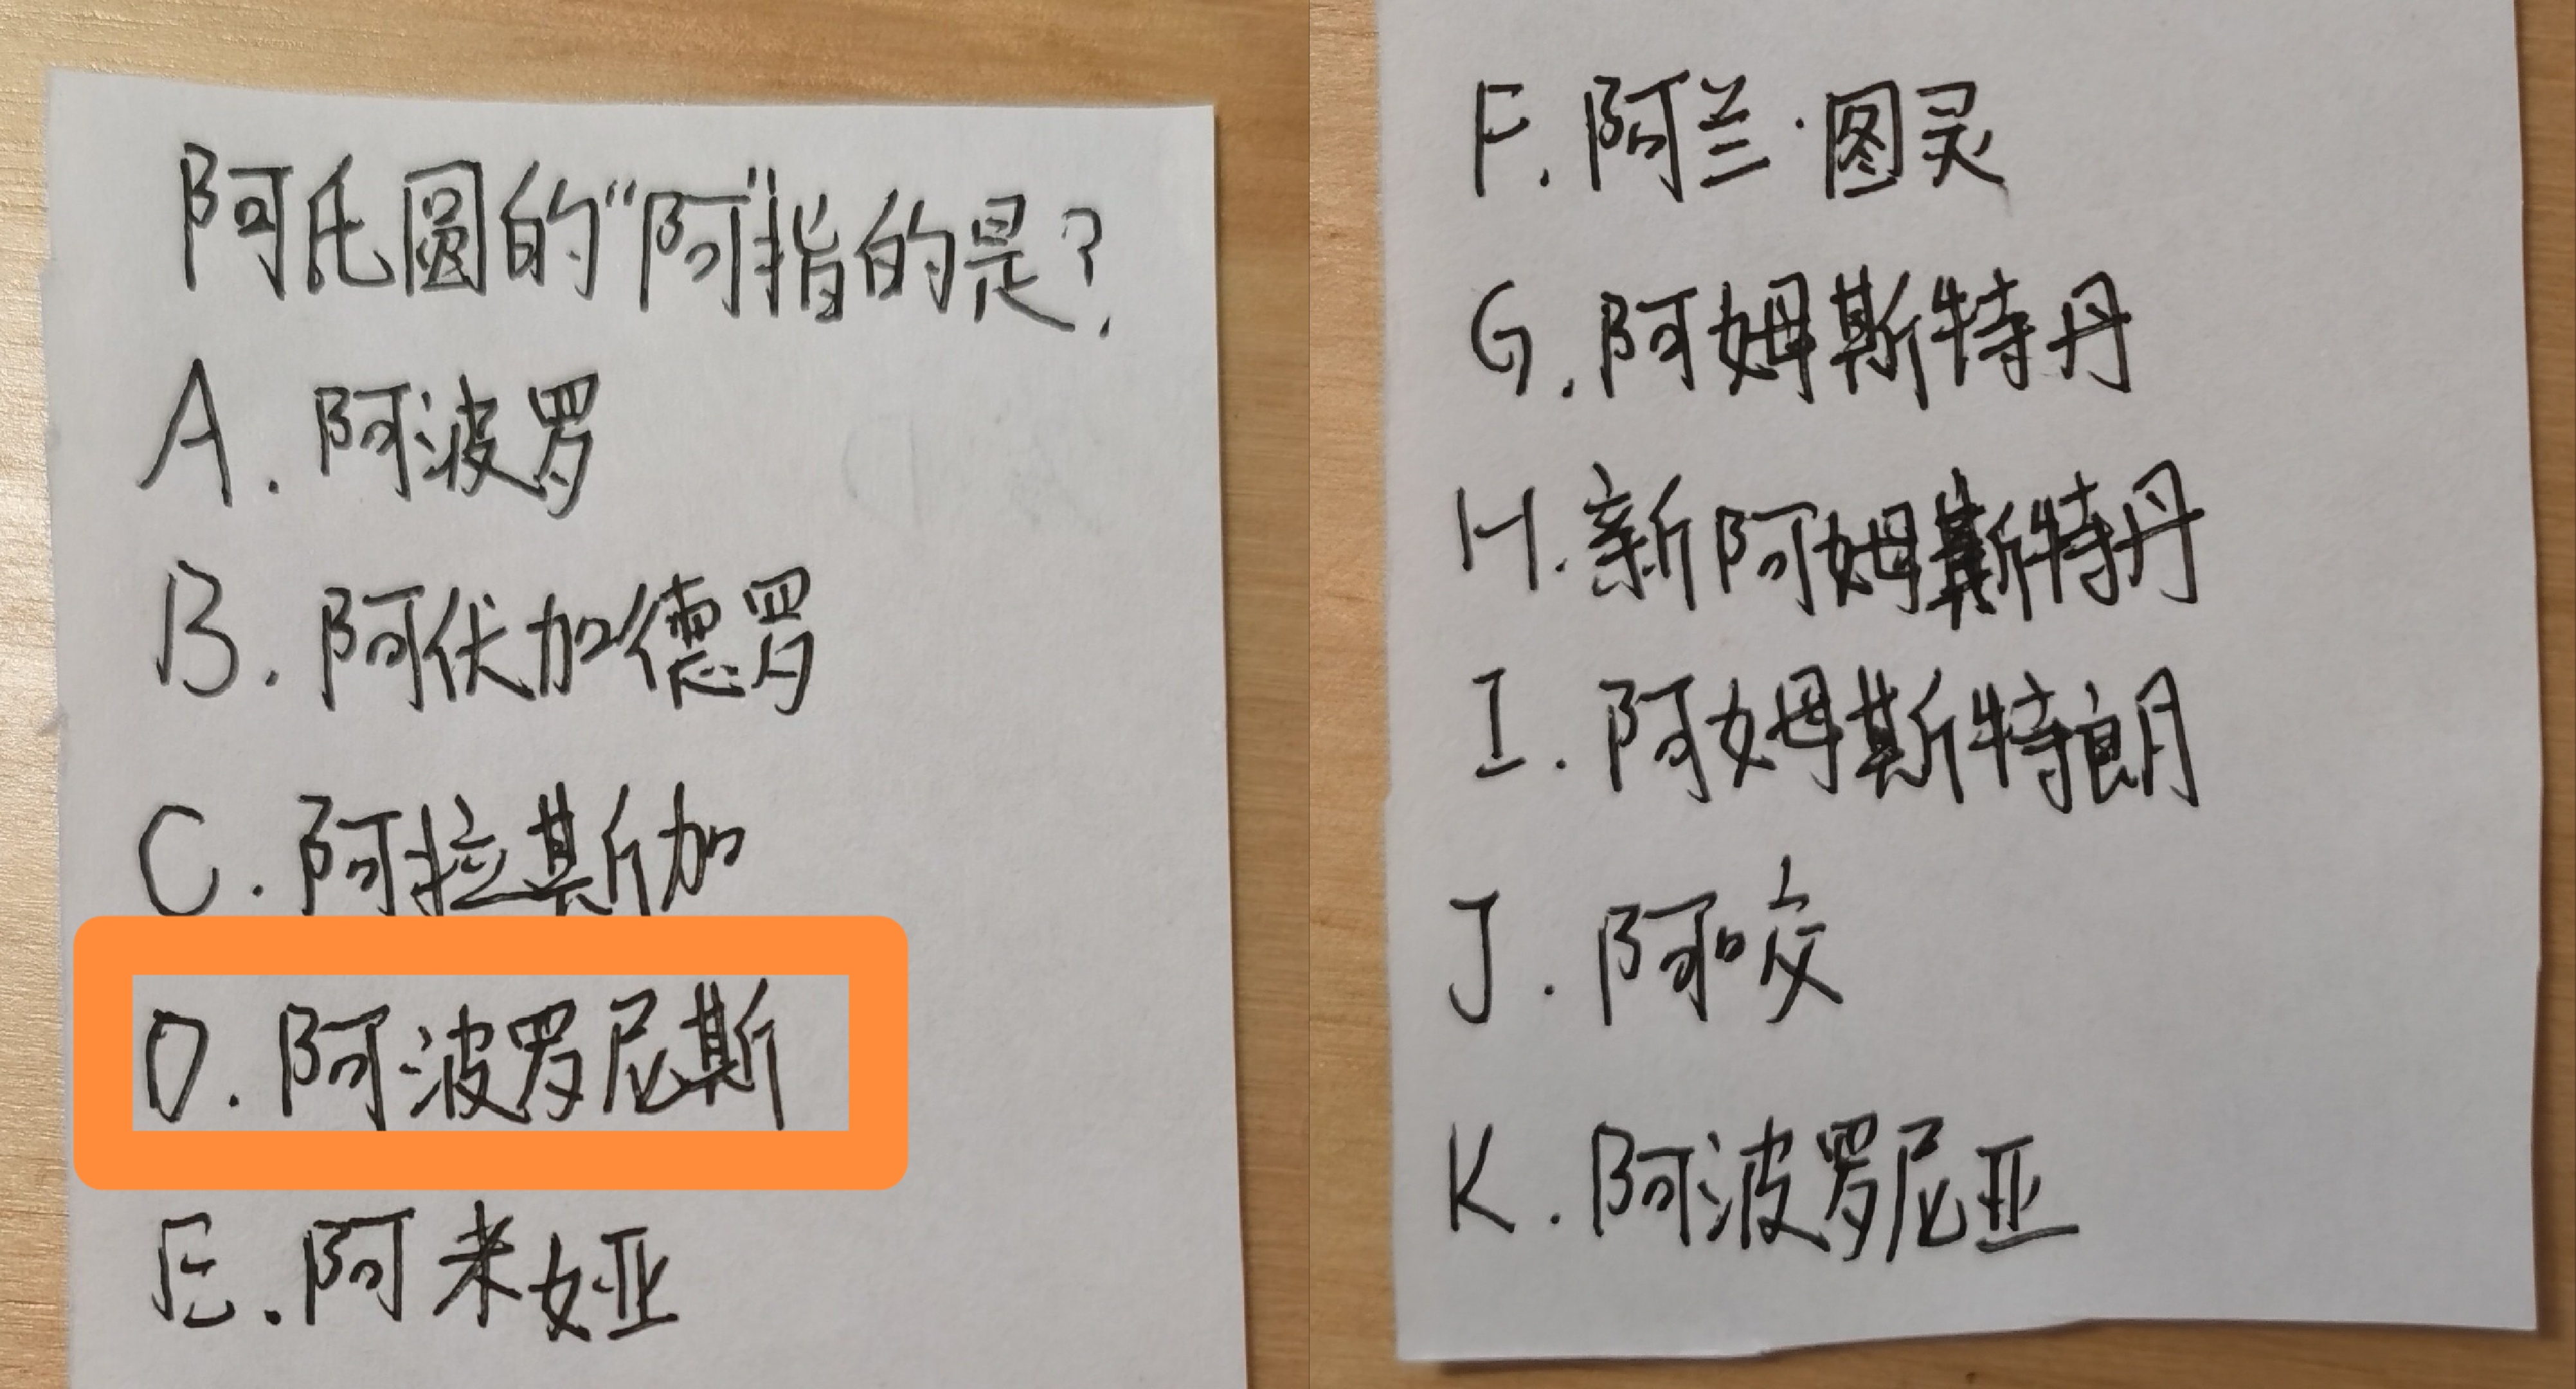 阿氏圆的“阿”指的是？
A. 阿波罗
B. 阿伏加德罗
C. 阿拉斯加
D. 阿波罗尼斯
E. 阿米娅
F. 阿兰·图灵
G. 阿姆斯特丹
H. 新阿姆斯特丹
I. 阿姆斯特朗
J. 阿咬
K. 阿波罗尼亚